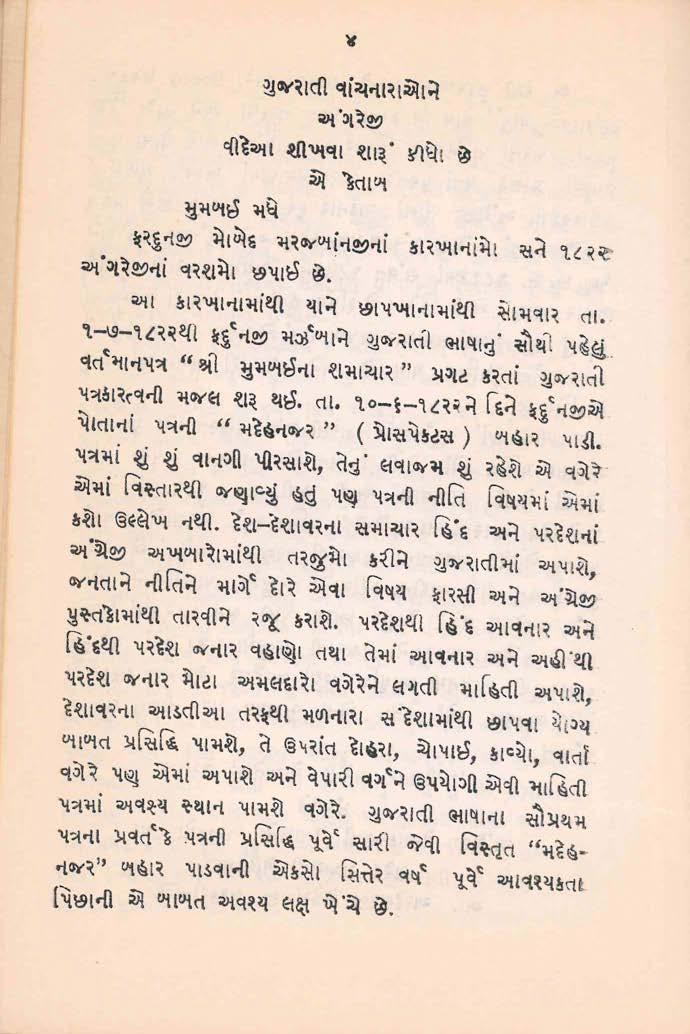 ૪
ગુજરાતી વાંચનારાઓને
અંગરેજી
વીદેઆ શીખવા શારૂં કીધો છે
એ કેતાબ
મુમબઈ મધે
ફરદુનજી મોબેદ મરજબાંનજીનાં કારખાનાંમો સને ૧૮૨૨
અંગરેજીનાં વરશમો છપાઈ છે.
આ કારખાનામાંથી યાને છાપખાનામાંથી સોમવાર તા.
૧–૭–૧૮૨૨થી ફર્દુનજી મર્ઝબાને ગુજરાતી ભાષાનું સૌથી પહેલું
વર્તમાનપત્ર “શ્રી મુમબઈના શમાચાર” પ્રગટ કરતાં ગુજરાતી
પત્રકારત્વની મજલ શરૂ થઈ. તા. ૧૦–૬–૧૮૨૨ને દિને ફર્દુનજીએ
પોતાનાં પત્રની “મદેહનજર” (પ્રોસપેકટસ) બહાર પાડી.
પત્રમાં શું શું વાનગી પીરસાશે, તેનું લવાજમ શું રહેશે એ વગેરે
એમાં વિસ્તારથી જણાવ્યું હતું પણ પત્રની નીતિ વિષયમાં એમાં
કશો ઉલ્લેખ નથી. દેશ–દેશાવરના સમાચાર હિંદ અને પરદેશનાં
અંગ્રેજી અખબારોમાંથી તરજુમો કરીને ગુજરાતીમાં અપાશે,
જનતાને નીતિને માર્ગે દોરે એવા વિષય ફારસી અને અંગ્રેજી
પુસ્તકોમાંથી તારવીને રજૂ કરાશે. પરદેશથી હિંદ આવનાર અને
હિંદથી પરદેશ જનાર વહાણો તથા તેમાં આવનાર અને અહીંથી
પરદેશ જનાર મોટા અમલદારો વગેરેને લગતી માહિતી અપાશે,
દેશાવરના આડતીઆ તરફથી મળનારા સંદેશામાંથી છાપવા યોગ્ય
બાબત પ્રસિદ્ધિ પામશે, તે ઉપરાંત દોહરા, ચોપાઈ, કાવ્યો, વાર્તા
વગેરે પણ એમાં અપાશે અને વેપારી વર્ગને ઉપયોગી એવી માહિતી
પત્રમાં અવશ્ય સ્થાન પામશે વગેરે. ગુજરાતી ભાષાના સૌપ્રથમ
પત્રના પ્રવર્તકે પત્રની પ્રસિદ્ધિ પૂર્વે સારી જેવી વિસ્તૃત “મદેહ-
નજર” બહાર પાડવાની એકસો સિત્તેર વર્ષ પૂર્વે આવશ્યકતા
પિછાની એ બાબત અવશ્ય લક્ષ ખેંચે છે.